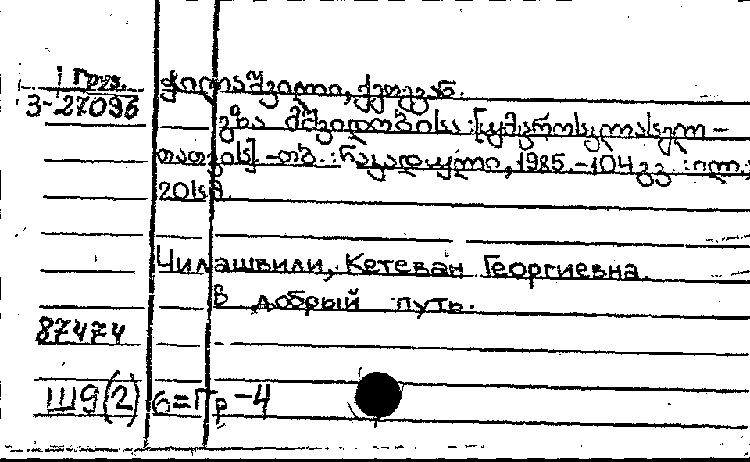 1 Груз.
3-27096
ჭილაშვილი, ქეთევან.
გზა მშვიდობისა : [უმცროსკლასელ-
თათვის]. - თბ. : ნაკადული, 1985. - 104 გვ. : ილ.;
20სმ.
Чилашвили, Кетеван Георгиевна.
В добрый путь.
87474
Ш9(2)6=Гр-4